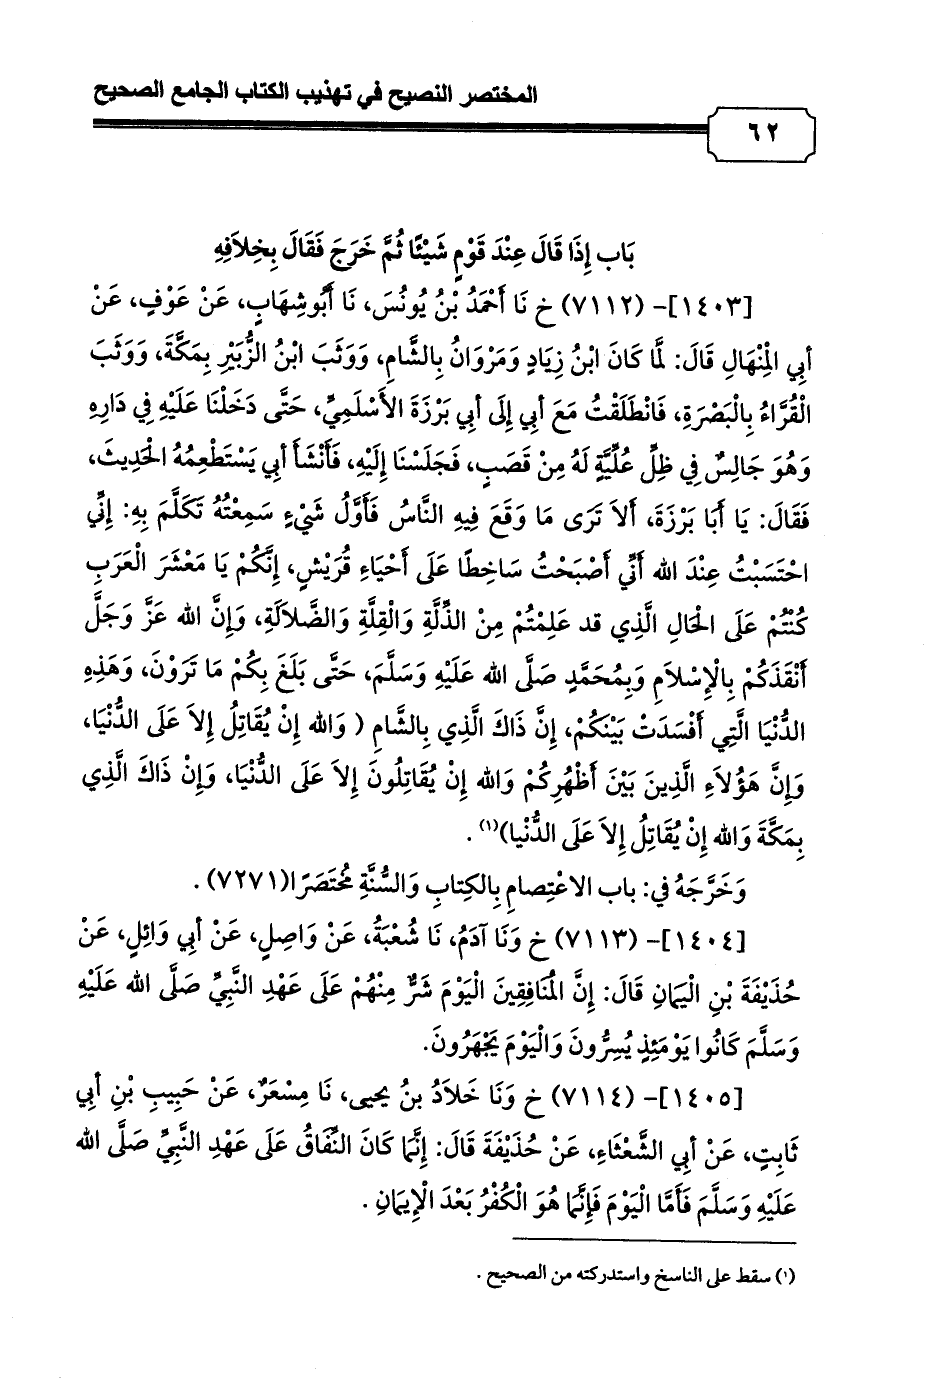 المختصر النصيح في تهذيب الكتاب الجامع الصحيح
٦٢
بَاب إِذَا قَالَ عِنْدَ قَوْمٍ شَيْئًا ثُمَّ خَرَجَ فَقَالَ بِخِلاَفِهِ
[١٤٠٣]- (٧١١٢) خ نَا أَحْمَدُ بْنُ يُونُسَ، نَا أَبُوشِهَابٍ، عَنْ عَوْفٍ، عَنْ
أبي المِنْهَالِ قَالَ: لَمَّا كَانَ ابْنُ زِيَادٍ وَمَرْوَانُ بِالشَّامِ، وَوَثَبَ ابْنُ الزُّبَيْرِ بِمَكَّةَ، وَوَثَبَ
الْقُرَّاءُ بِالْبَصْرَةِ، فَانْطَلَقْتُ مَعَ أبِي إِلَى أبِي بَرْزَةَ الأَسْلَمِيِّ، حَتَّى دَخَلْنَا عَلَيْهِ فِي دَارِهِ
وَهُوَ جَالِسٌ فِي ظِلِّ عُلِّيَّةٍ لَهُ مِنْ قَصَبٍ، فَجَلَسْنَا إِلَيْهِ، فَأَنْشَأَ أبِي يَسْتَطْعِمُهُ الْحَدِيثَ،
فَقَالَ: يَا أَبَا بَرْزَةَ، أَلاَ تَرَى مَا وَقَعَ فِيهِ النَّاسُ فَأَوَّلُ شَيْءٍ سَمِعْتُهُ تَكَلَّمَ بِهِ: إِنِّي
احْتَسَبْتُ عِنْدَ الله أَنِّي أَصْبَحْتُ سَاخِطًا عَلَى أَحْيَاءِ قُرَيْشٍ، إِنَّكُمْ يَا مَعْشَرَ الْعَرَبِ
كُنْتُمْ عَلَى الْحَالِ الَّذِي قد عَلِمْتُمْ مِنْ الذِّلَّةِ وَالْقِلَّةِ وَالضَّلاَلَةِ، وَإِنَّ الله عَزَّ وَجَلَّ
أَنْقَذَكُمْ بِالْإِسْلاَمِ وَبِمُحَمَّدٍ صَلَّى الله عَلَيْهِ وَسَلَّمَ، حَتَّى بَلَغَ بِكُمْ مَا تَرَوْنَ، وَهَذِهِ
الدُّنْيَا الَّتِي أَفْسَدَتْ بَيْنَكُمْ، إِنَّ ذَاكَ الَّذِي بِالشَّامِ ( وَالله إِنْ يُقَاتِلُ إِلاَ عَلَى الدُّنْيَا،
وَإِنَّ هَؤُلاَءِ الَّذِينَ بَيْنَ أَظْهُرِكُمْ وَالله إِنْ يُقَاتِلُونَ إِلاَ عَلَى الدُّنْيَا، وَإِنْ ذَاكَ الَّذِي
بِمَكَّةَ وَالله إِنْ يُقَاتِلُ إِلاَ عَلَى الدُّنْيا)(١) .
وَخَرَّجَهُ في: باب الاعْتِصامِ بِالكِتابِ وَالسُّنَّةِ مُخْتَصَرًا(٧٢٧١) .
[١٤٠٤]- (٧١١٣) خ وَنَا آدَمُ، نَا شُعْبَةُ، عَنْ وَاصِلٍ، عَنْ أبِي وَائِلٍ، عَنْ
حُذَيْفَةَ بْنِ الْيَمَانِ قَالَ: إِنَّ الْمُنَافِقِينَ الْيَوْمَ شَرٌّ مِنْهُمْ عَلَى عَهْدِ النَّبِيِّ صَلَّى الله عَلَيْهِ
وَسَلَّمَ كَانُوا يَوْمَئِذٍ يُسِرُّونَ وَالْيَوْمَ يَجْهَرُونَ.
[١٤٠٥]- (٧١١٤) خ وَنَا خَلاَدُ بنُ يحيى، نَا مِسْعَرٌ، عَنْ حَبِيبِ بْنِ أبِي
ثَابِتٍ، عَنْ أبِي الشَّعْثَاءِ، عَنْ حُذَيْفَةَ قَالَ: إِنَّمَا كَانَ النِّفَاقُ عَلَى عَهْدِ النَّبِيِّ صَلَّى الله
عَلَيْهِ وَسَلَّمَ فَأَمَّا الْيَوْمَ فَإِنَّمَا هُوَ الْكُفْرُ بَعْدَ الْإِيمَانِ .
(١) سقط على الناسخ واستدركته من الصحيح .